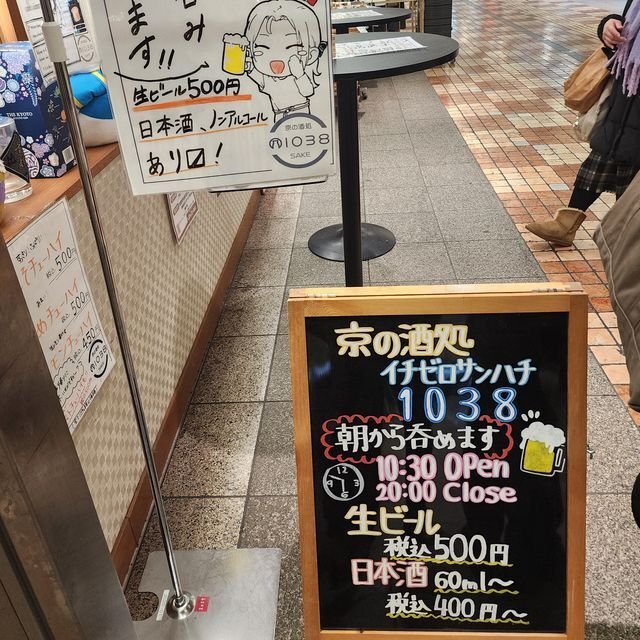 呑み
ます!!
生ビール500円
日本酒、ノンアルコール
あり〼!
京の酒処
の1038
SAKE
京の酒処
イチゼロサンハチ
1038
朝から呑めます
10:30 Open
20:00 Close
生ビール
税込500円
日本酒 60ml〜
税込400円〜
チューハイ
税込500円
チューハイ
500円
450円